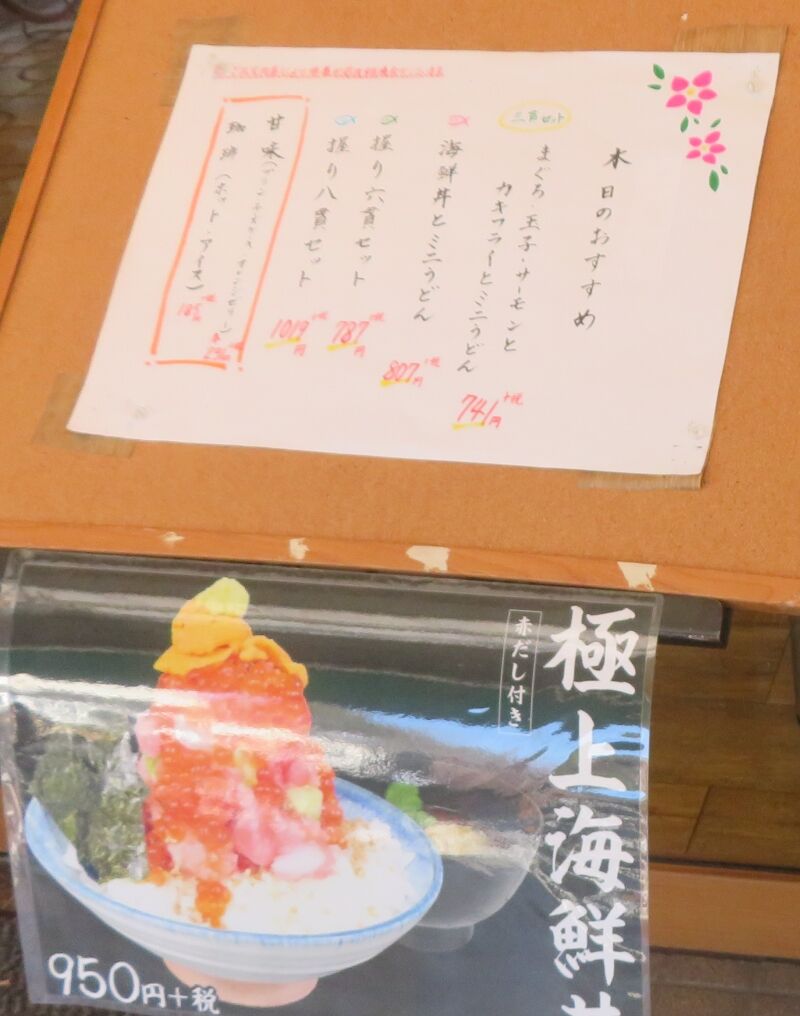 本日のおすすめ
三貫セット
まぐろ・玉子・サーモンと
カキフライとミニうどん
741円
+税
海鮮丼とミニうどん
807円
+税
握り六貫セット
787円
+税
握り八貫セット
1019円
+税
甘味(プリン
珈琲(ホット・アイス)
極上海鮮
赤だし付き
950円+税